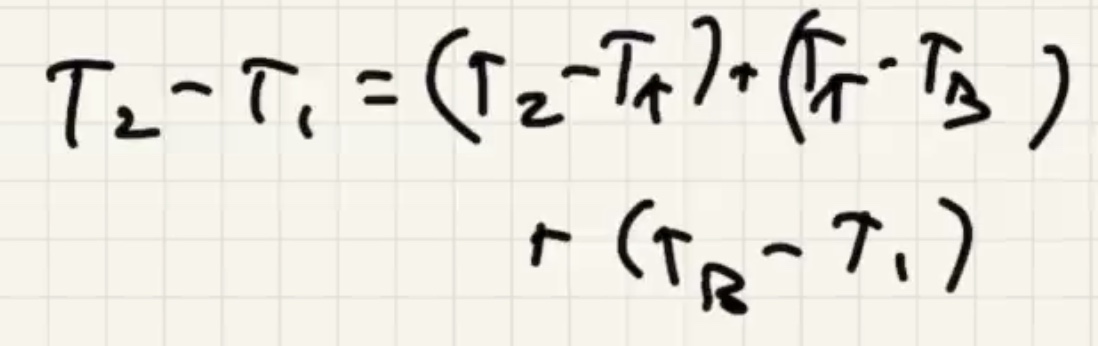 T₂ - T₁ = (T₂ - T_A) + (T_A - T_B)
+ (T_B - T₁)